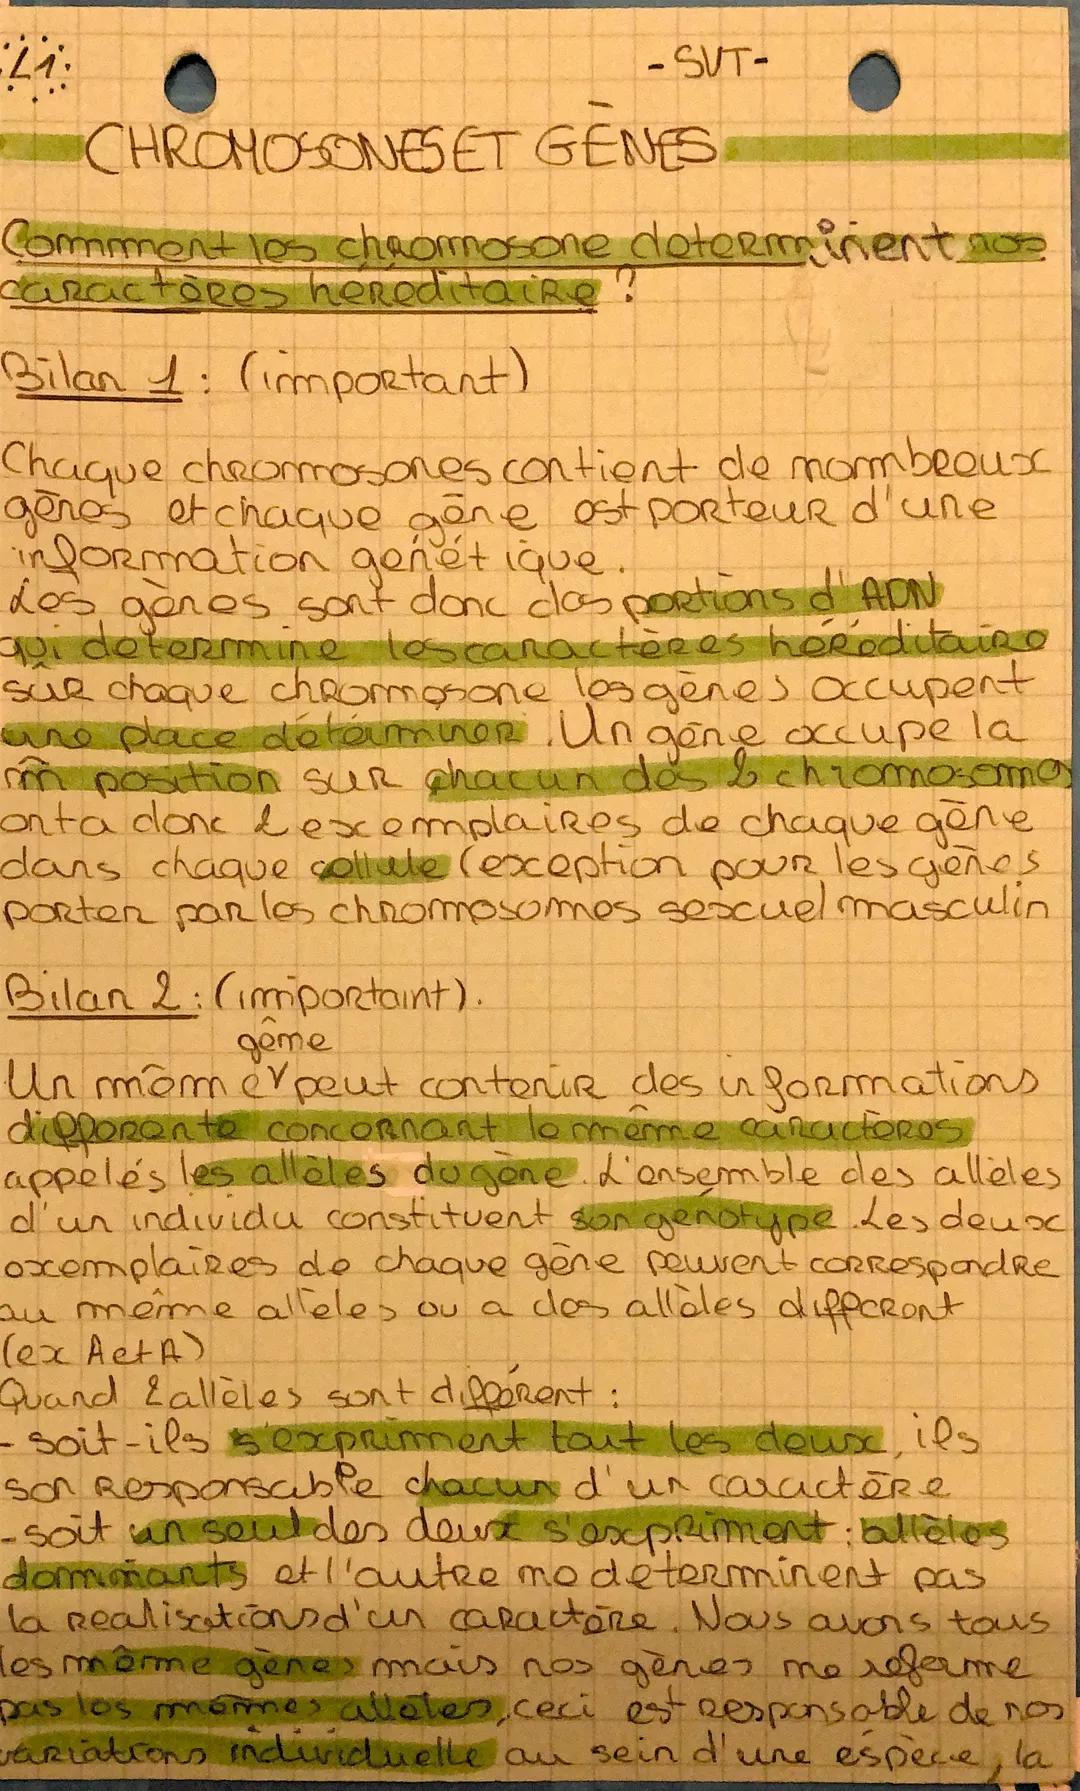 L1:
- SVT-
CHROMOSONES ET GÈNES
Commment les chromosone determinent nos
caractères hereditaire ?
Bilan 1 : (important)
Chaque chromosones contient de nombreux
gènes et chaque gène est porteur d'une
information genétique.
Les gènes sont donc des portions d'ADN
qui détermine les caractères héréditaire
sur chaque chromosone les gènes occupent
une place déterminer. Un gène occupe la
m̂ position sur chacun des 2 chromosomes
onta donc 2 exemplaires de chaque gène
dans chaque cellule (exception pour les gènes
porter par les chromosomes sexuel masculin
Bilan 2 : (important).
gême
Un même peut contenir des informations
differente concernant le même caractères
appelés les allèles du gène. L'ensemble des allèles
d'un individu constituent son génotype. Les deux
exemplaires de chaque gène peuvent correspondre
au même allèles ou a des allèles différont
(ex A et A)
Quand 2 allèles sont différent :
- soit-ils s'expriment tout les deux, ils
son responsable chacun d'un caractère
- soit un seul des deux s'expriment : allèles
dominants et l'autre ne determinent pas
la realisations d'un caractère. Nous avons tous
les même gènes mais nos gènes ne referme
pas les mêmes allèles, ceci est responsable de nos
variations individuelle au sein d'une espèce, la